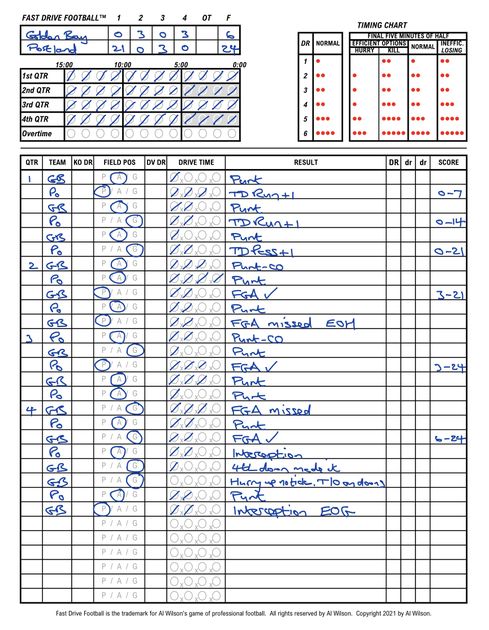 FAST DRIVE FOOTBALL™ 1 2 3 4 OT F
Golden Bay 0 3 0 3 6
Portland 21 0 3 0 24
15:00 10:00 5:00 0:00
1st QTR
2nd QTR
3rd QTR
4th QTR
Overtime
TIMING CHART
FINAL FIVE MINUTES OF HALF
DR NORMAL EFFICIENT OPTIONS NORMAL INEFFIC.
HURRY KILL LOSING
1
2
3
4
5
6
QTR TEAM KO DR FIELD POS DV DR DRIVE TIME RESULT DR dr dr SCORE
1 GB P / A / G Punt
Po P / A / G TD Run+1 0-7
GB P / A / G Punt
Po P / A / G TD Run+1 0-14
GB P / A / G Punt
Po P / A / G TD Pass+1 0-21
2 GB P / A / G Punt-CO
Po P / A / G Punt
GB P / A / G FGA ✓ 3-21
Po P / A / G Punt
GB P / A / G FGA missed EOH
3 Po P / A / G Punt-CO
GB P / A / G Punt
Po P / A / G FGA ✓ 3-24
GB P / A / G Punt
Po P / A / G Punt
4 GB P / A / G FGA missed
Po P / A / G Punt
GB P / A / G FGA ✓ 6-24
Po P / A / G Interception
GB P / A / G 4th down made it
GB P / A / G Hurry up no tick. T/O on downs
Po P / A / G Punt
GB P / A / G Interception EOG
P / A / G
P / A / G
P / A / G
P / A / G
P / A / G
P / A / G
Fast Drive Football is the trademark for Al Wilson's game of professional football. All rights reserved by Al Wilson. Copyright 2021 by Al Wilson.